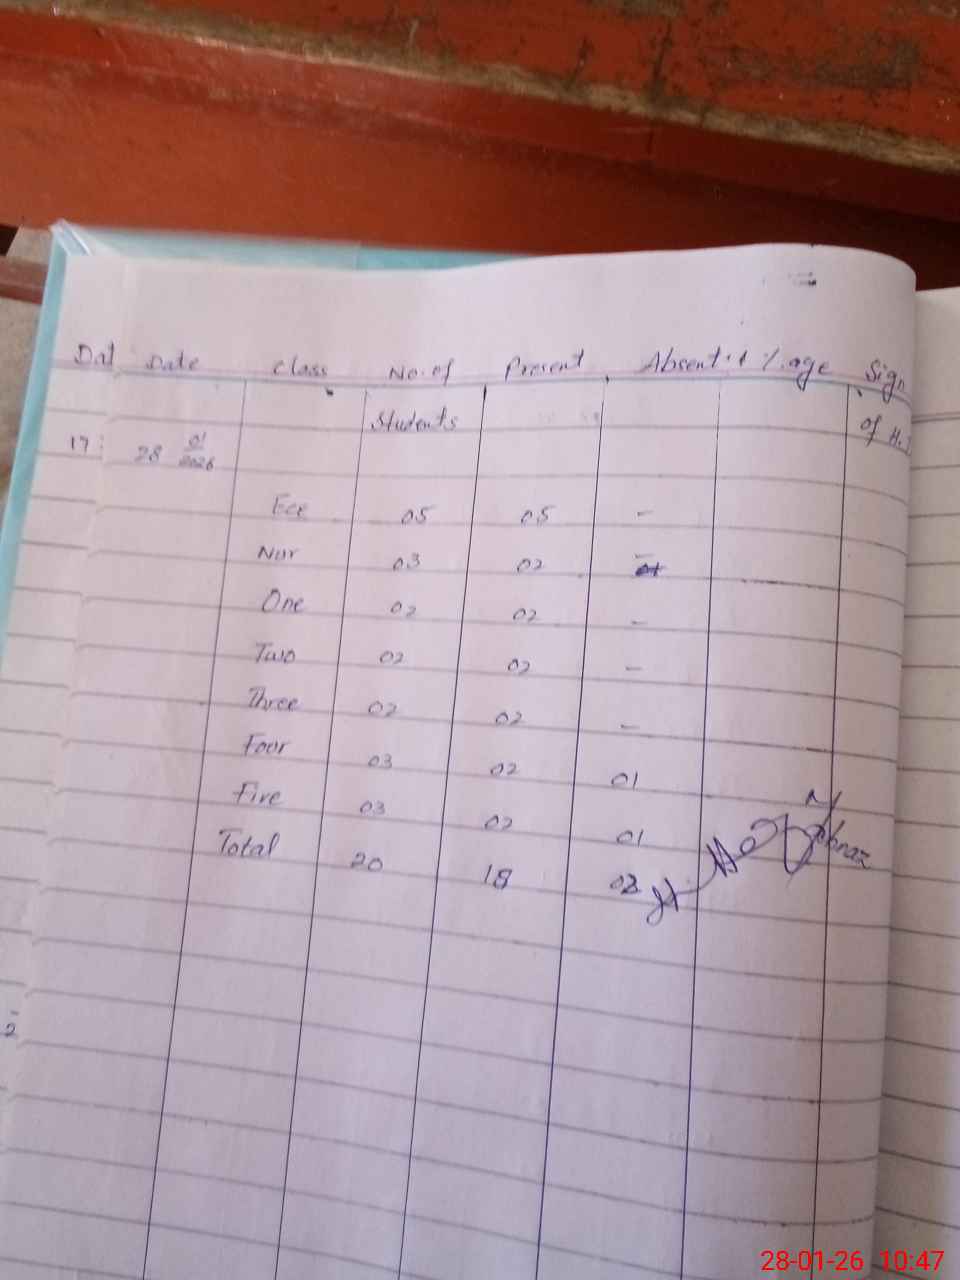 Dat Date Class No. of Present Absent %.age Sign
Students of H.
17 28 01/2026
Ece 05 05 -
Nur 03 02 -
One 02 02 -
Two 02 02 -
Three 02 02 -
Four 03 02 01
Five 03 02 01
Total 20 18 02
2
28-01-26 10:47